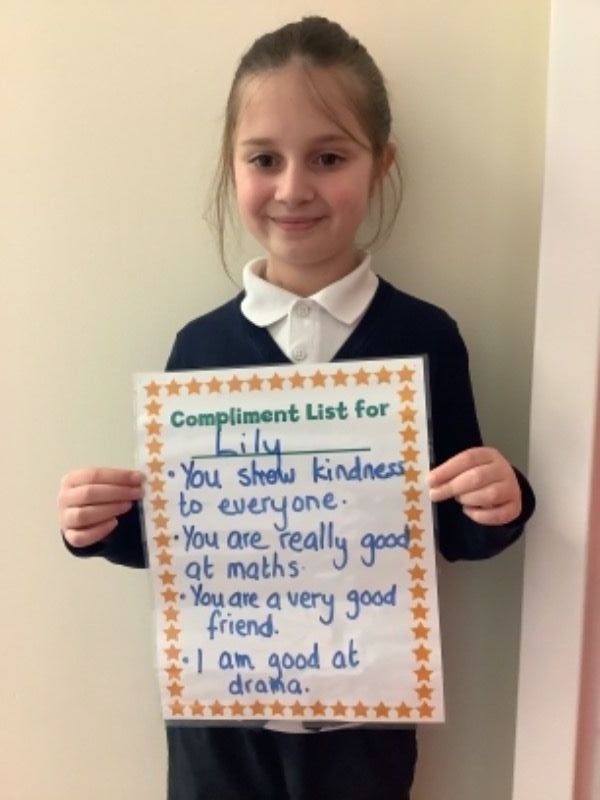 Compliment List for
Lily
• You show kindness
to everyone.
• You are really good
at maths.
• You are a very good
friend.
• I am good at
drama.